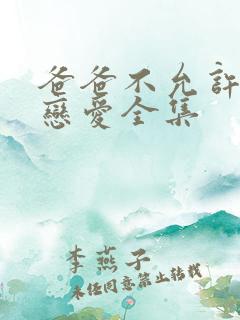 爸爸不允許
戀愛全集
李燕子
未经同意禁止转载